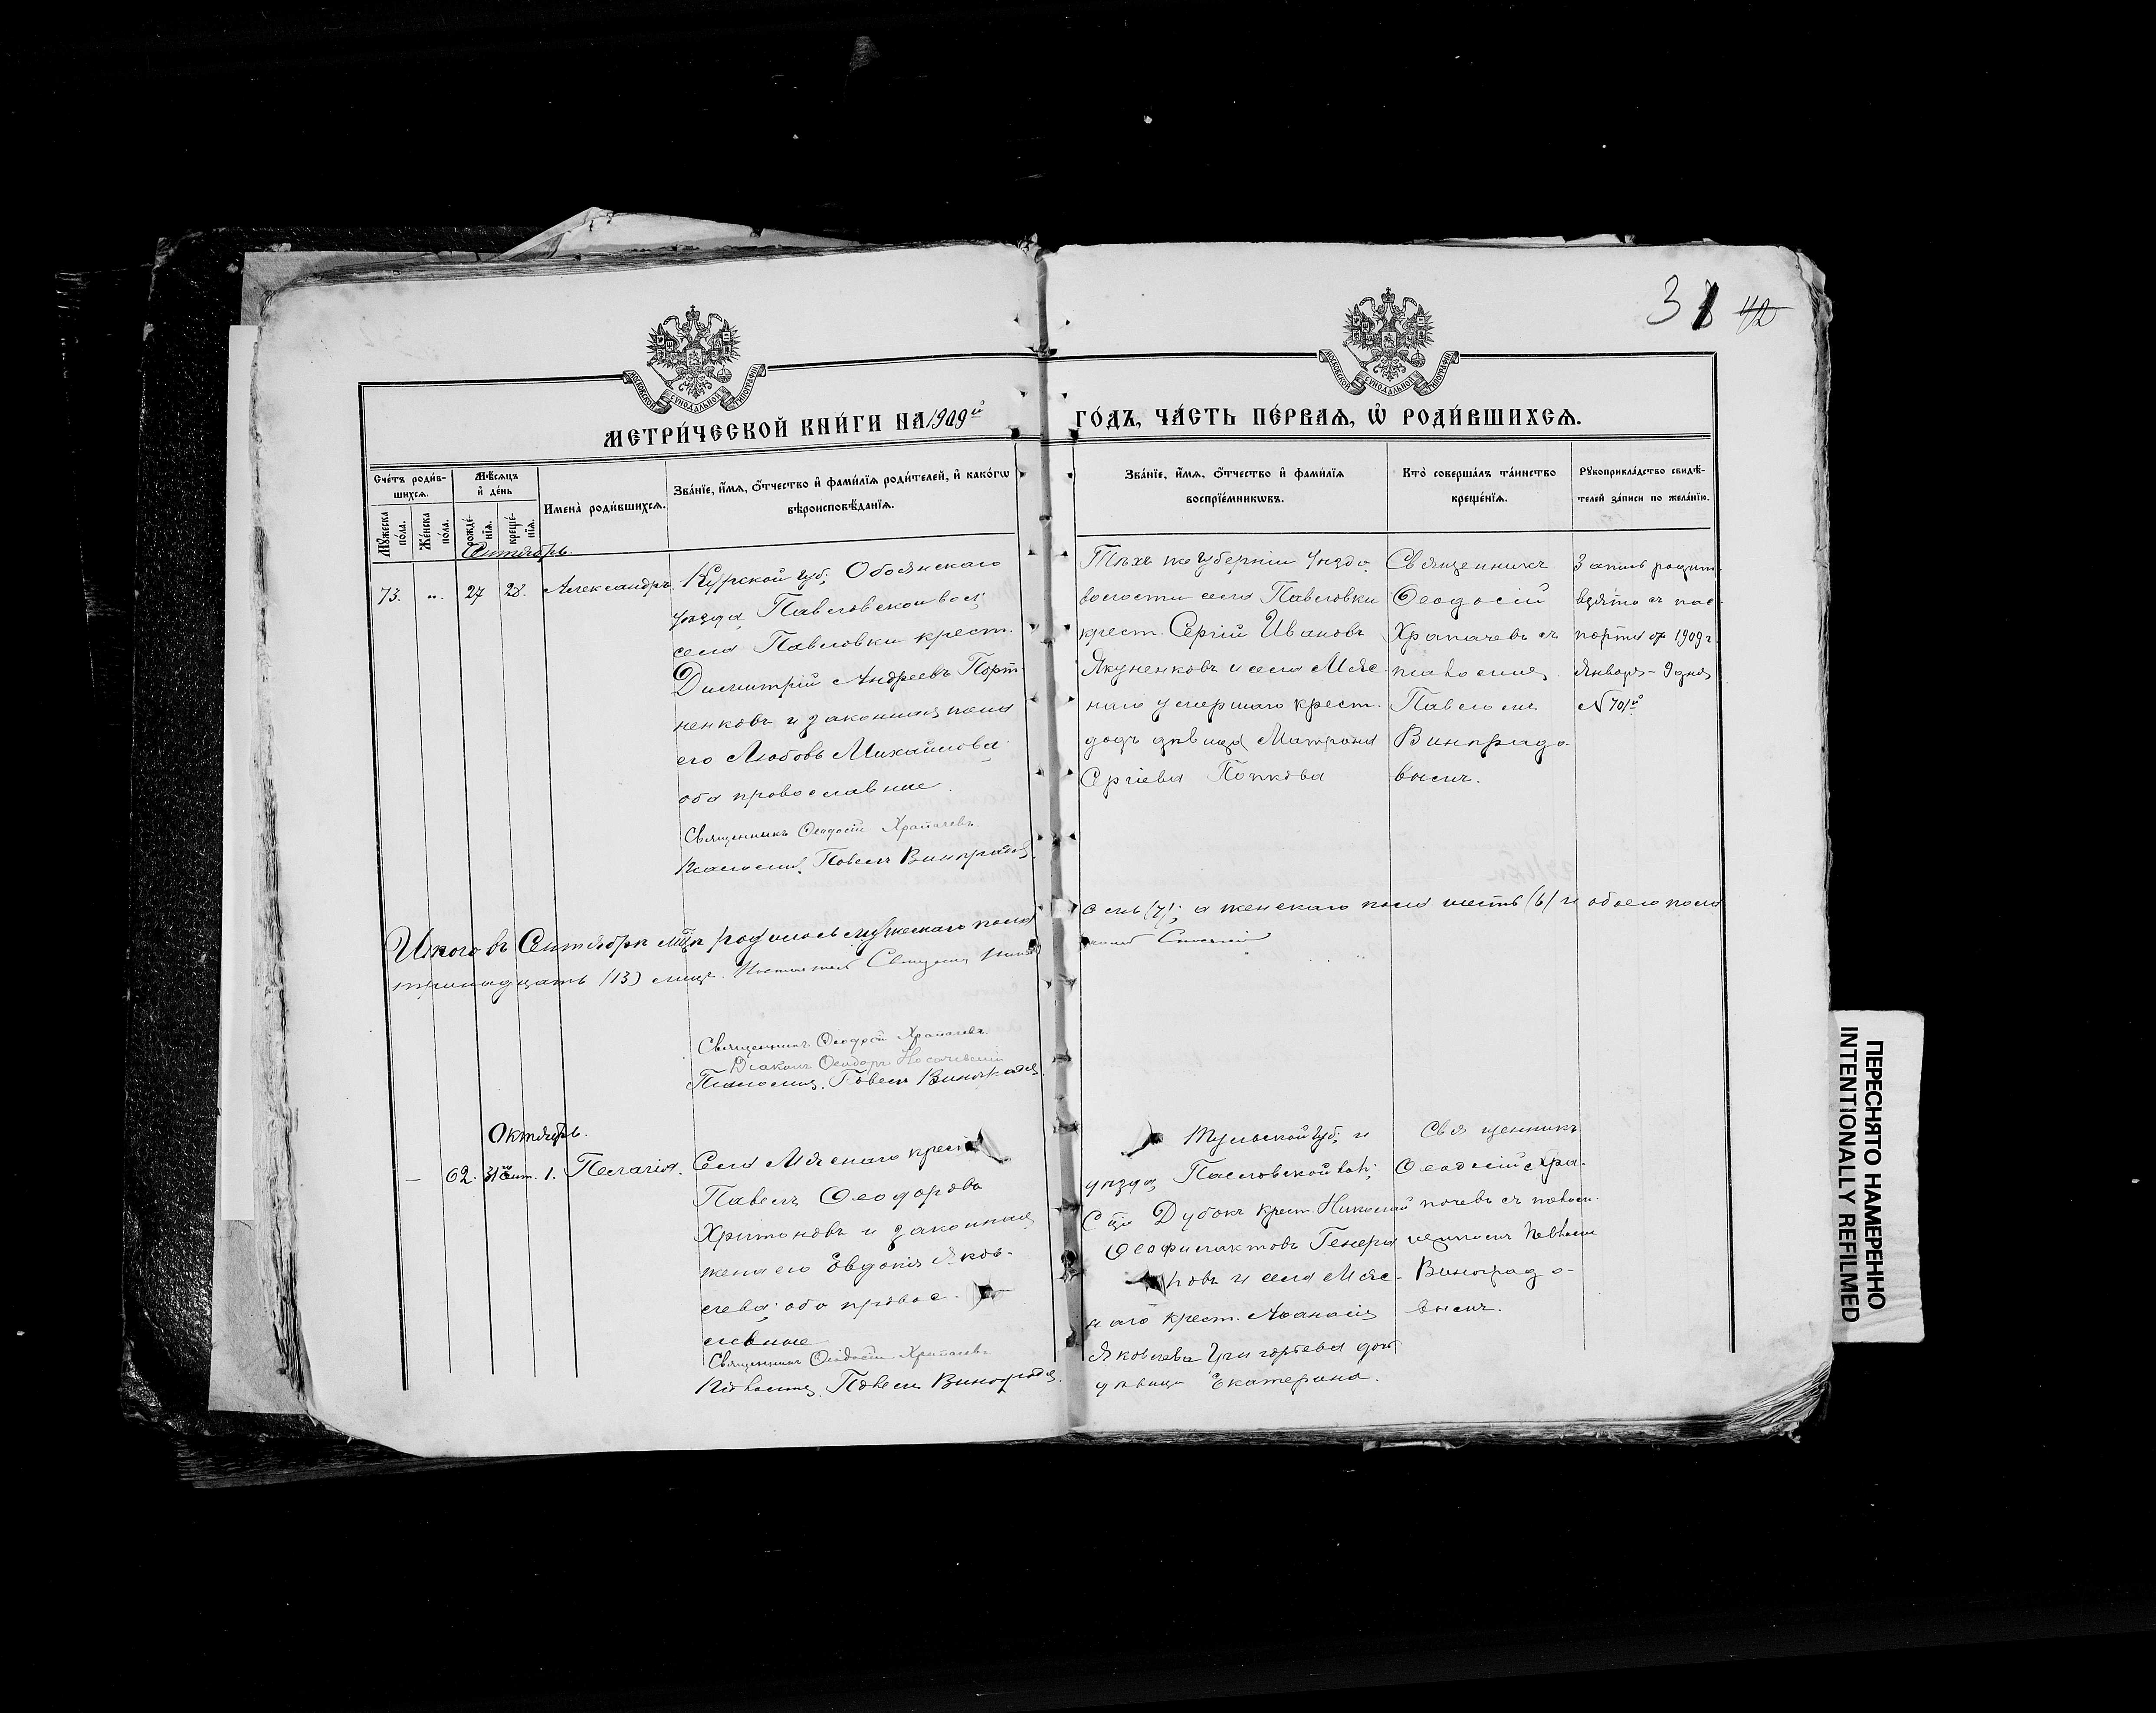 31 42
МОСКОВСКОЙ СѴНОДАЛЬНОЙ ТИПОГРАФІИ
МОСКОВСКОЙ СѴНОДАЛЬНОЙ ТИПОГРАФІИ
МЕТРИ́ЧЕСКОЙ КНИ́ГИ НА 1909й ГО́ДЪ, ЧА́СТЬ ПЕ́РВАѦ, Ѡ҆ РОДИ́ВШИХСѦ.
Сче́тъ роди́в-
шихсѧ.
Мꙋ́жеска по́ла.
Же́нска по́ла.
Мѣ́сѧцъ
и҆ де́нь
рожде́-
нїѧ.
креще́-
нїѧ.
Имена̀ роди́вшихсѧ.
Зва́нїе, и҆́мѧ, ѻ҆́тчество и҆ фами́лїѧ роди́телей, и҆ како́гѡ
вѣроисповѣ́данїѧ.
Зва́нїе, и҆́мѧ, ѻ҆́тчество и҆ фами́лїѧ
воспрїе́мникѡвъ.
Кто̀ соверша́лъ та́инство
креще́нїѧ.
Рꙋкоприкла́дство свидѣ́-
телей за́писи по жела́нїю.
Сентябрь.
73. „. 27 28. Александръ.
Курской губ; Обоянскаго
уѣзда, Павловской вол;
села Павловки крест.
Димитрій Андреевъ Порт-
ненковъ и законная жена
его Любовь Михайлова
оба православные.
Священникъ Ѳеодосій Храпачевъ
Псаломщ. Павелъ Виноградовъ.
Тѣхъ же губерніи уѣзда,
волости села Павловки
крест. Сергій Ивановъ
Якуненковъ и села Мяс-
наго умершаго крест.
дочь дѣвица Матрона
Сергіева Попкова
Священникъ
Ѳеодосій
Храпачевъ съ
псаломщ.
Павломъ
Виноградо-
вымъ.
Запись родит.
взята съ пас-
порта отъ 1909 г.
Января 9 дня
№ 701й
Итого въ Сентябрѣ мцѣ родилось мужескаго пола семь (7); а женскаго пола шесть (6) и обоего пола
тринадцать (13) лицъ.
Священникъ Ѳеодосій Храпачевъ.
Діаконъ Ѳеодоръ
Псаломщ. Павелъ Виноградовъ.
Октябрь.
— 62. Сент. 1. Пелагія.
Села Мяснаго крест.
Павелъ Ѳеодоровъ
Харитоновъ и законная
жена его Евдокія Яков-
лева; оба право-
славные
Священникъ Ѳеодосій Храпачевъ
Псаломщ. Павелъ Виноградовъ.
Тульской губ; и
уѣзда, Павловской вол;
Дубокъ крест. Николай
Ѳеофилактовъ Генера
ловъ и села Мяс-
наго крест. Аѳанасія
Яковлева Григорьева дочь
дѣвица Екатерина.
Священникъ
Ѳеодосій Хра-
пачевъ съ псалом-
щикомъ Павломъ
Виноградо-
вымъ.
ПЕРЕСНЯТО НАМЕРЕННО
INTENTIONALLY REFILMED